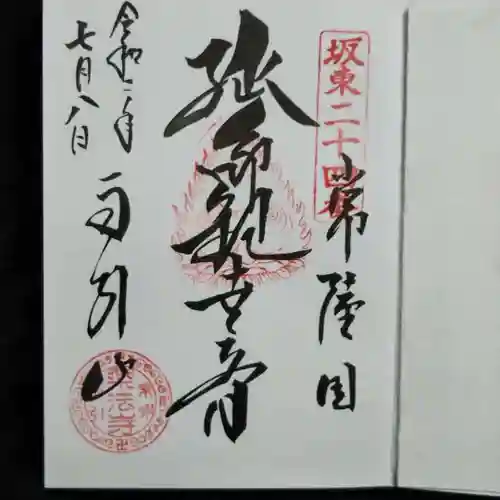 坂東二十四番
常陸国
延命観世音
雨引山
令和二年
七月八日